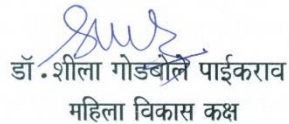 डॉ.शीला गोडबोले पाईकराव
महिला विकास कक्ष